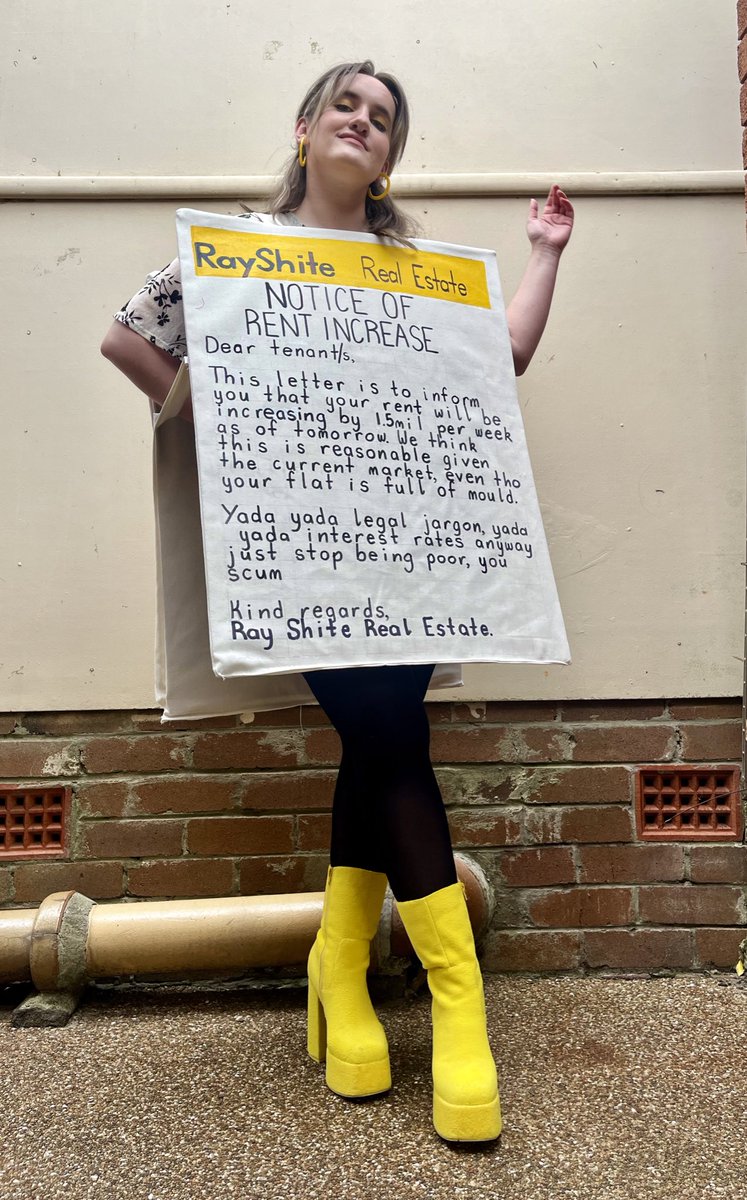 RayShite Real Estate
NOTICE OF
RENT INCREASE
Dear tenant/s,
This letter is to inform
you that your rent will be
increasing by 1.5mil per week
as of tomorrow. We think
this is reasonable given
the current market, even tho
your flat is full of mould.
Yada yada legal jargon, yada
yada interest rates anyway
just stop being poor, you
scum
Kind regards,
Ray Shite Real Estate.